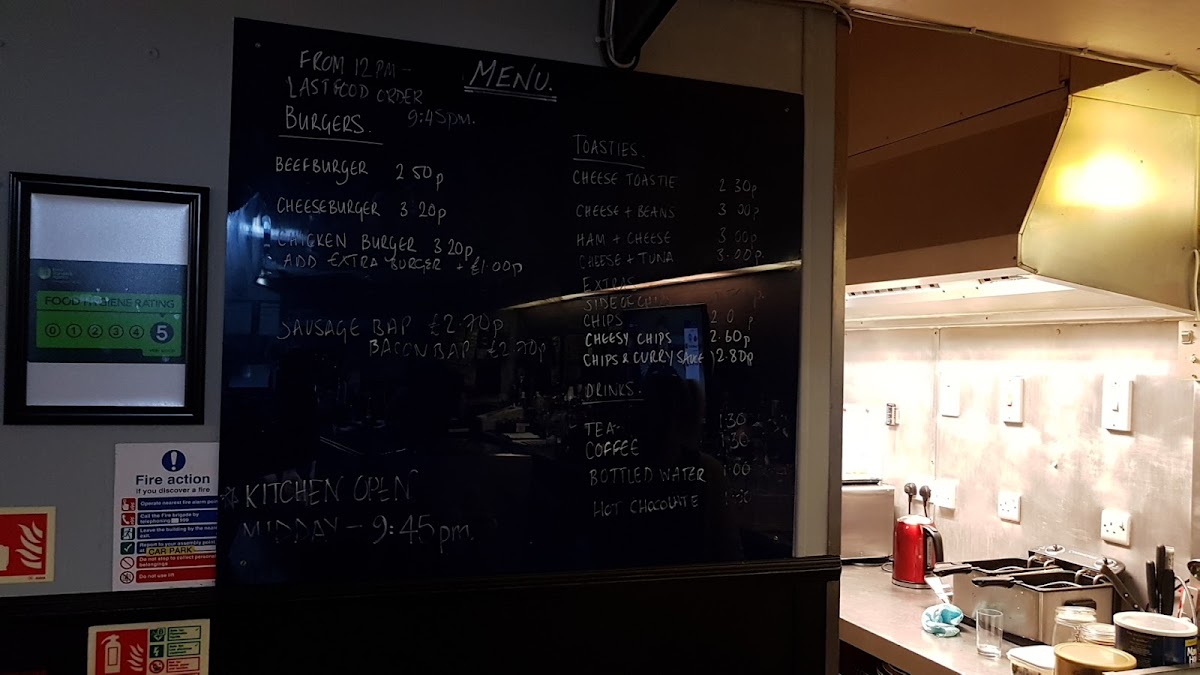 MENU.
FROM 12PM -
LAST FOOD ORDER
9:45pm.
BURGERS.
BEEFBURGER 2 50p
CHEESEBURGER 3 20p
CHICKEN BURGER 3 20p
ADD EXTRA BURGER + £1.00p
SAUSAGE BAP £2.70p
BACON BAP £2.70p
* KITCHEN OPEN
MIDDAY - 9:45pm.
TOASTIES.
CHEESE TOASTIE 2 30p
CHEESE + BEANS 3 00p
HAM + CHEESE 3 00p
CHEESE + TUNA 3.00p
EXTRAS
SIDE OF
CHIPS
CHEESY CHIPS 2.60p
CHIPS & CURRY SAUCE 2.80p
DRINKS.
TEA- 1:30
COFFEE 1:30
BOTTLED WATER 1:00
HOT CHOCOLATE
FOOD HYGIENE RATING
0 1 2 3 4 5
Fire action
If you discover a fire
Operate nearest fire alarm point
Call the Fire brigade by
telephoning 999
Leave the building by the nearest
exit.
Report to your assembly point
at CAR PARK
Do not stop to collect personal
belongings
Do not use lift